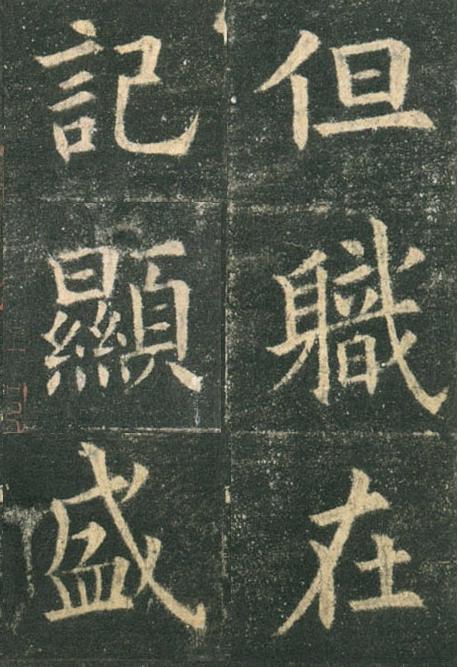 但軄在
記顯盛